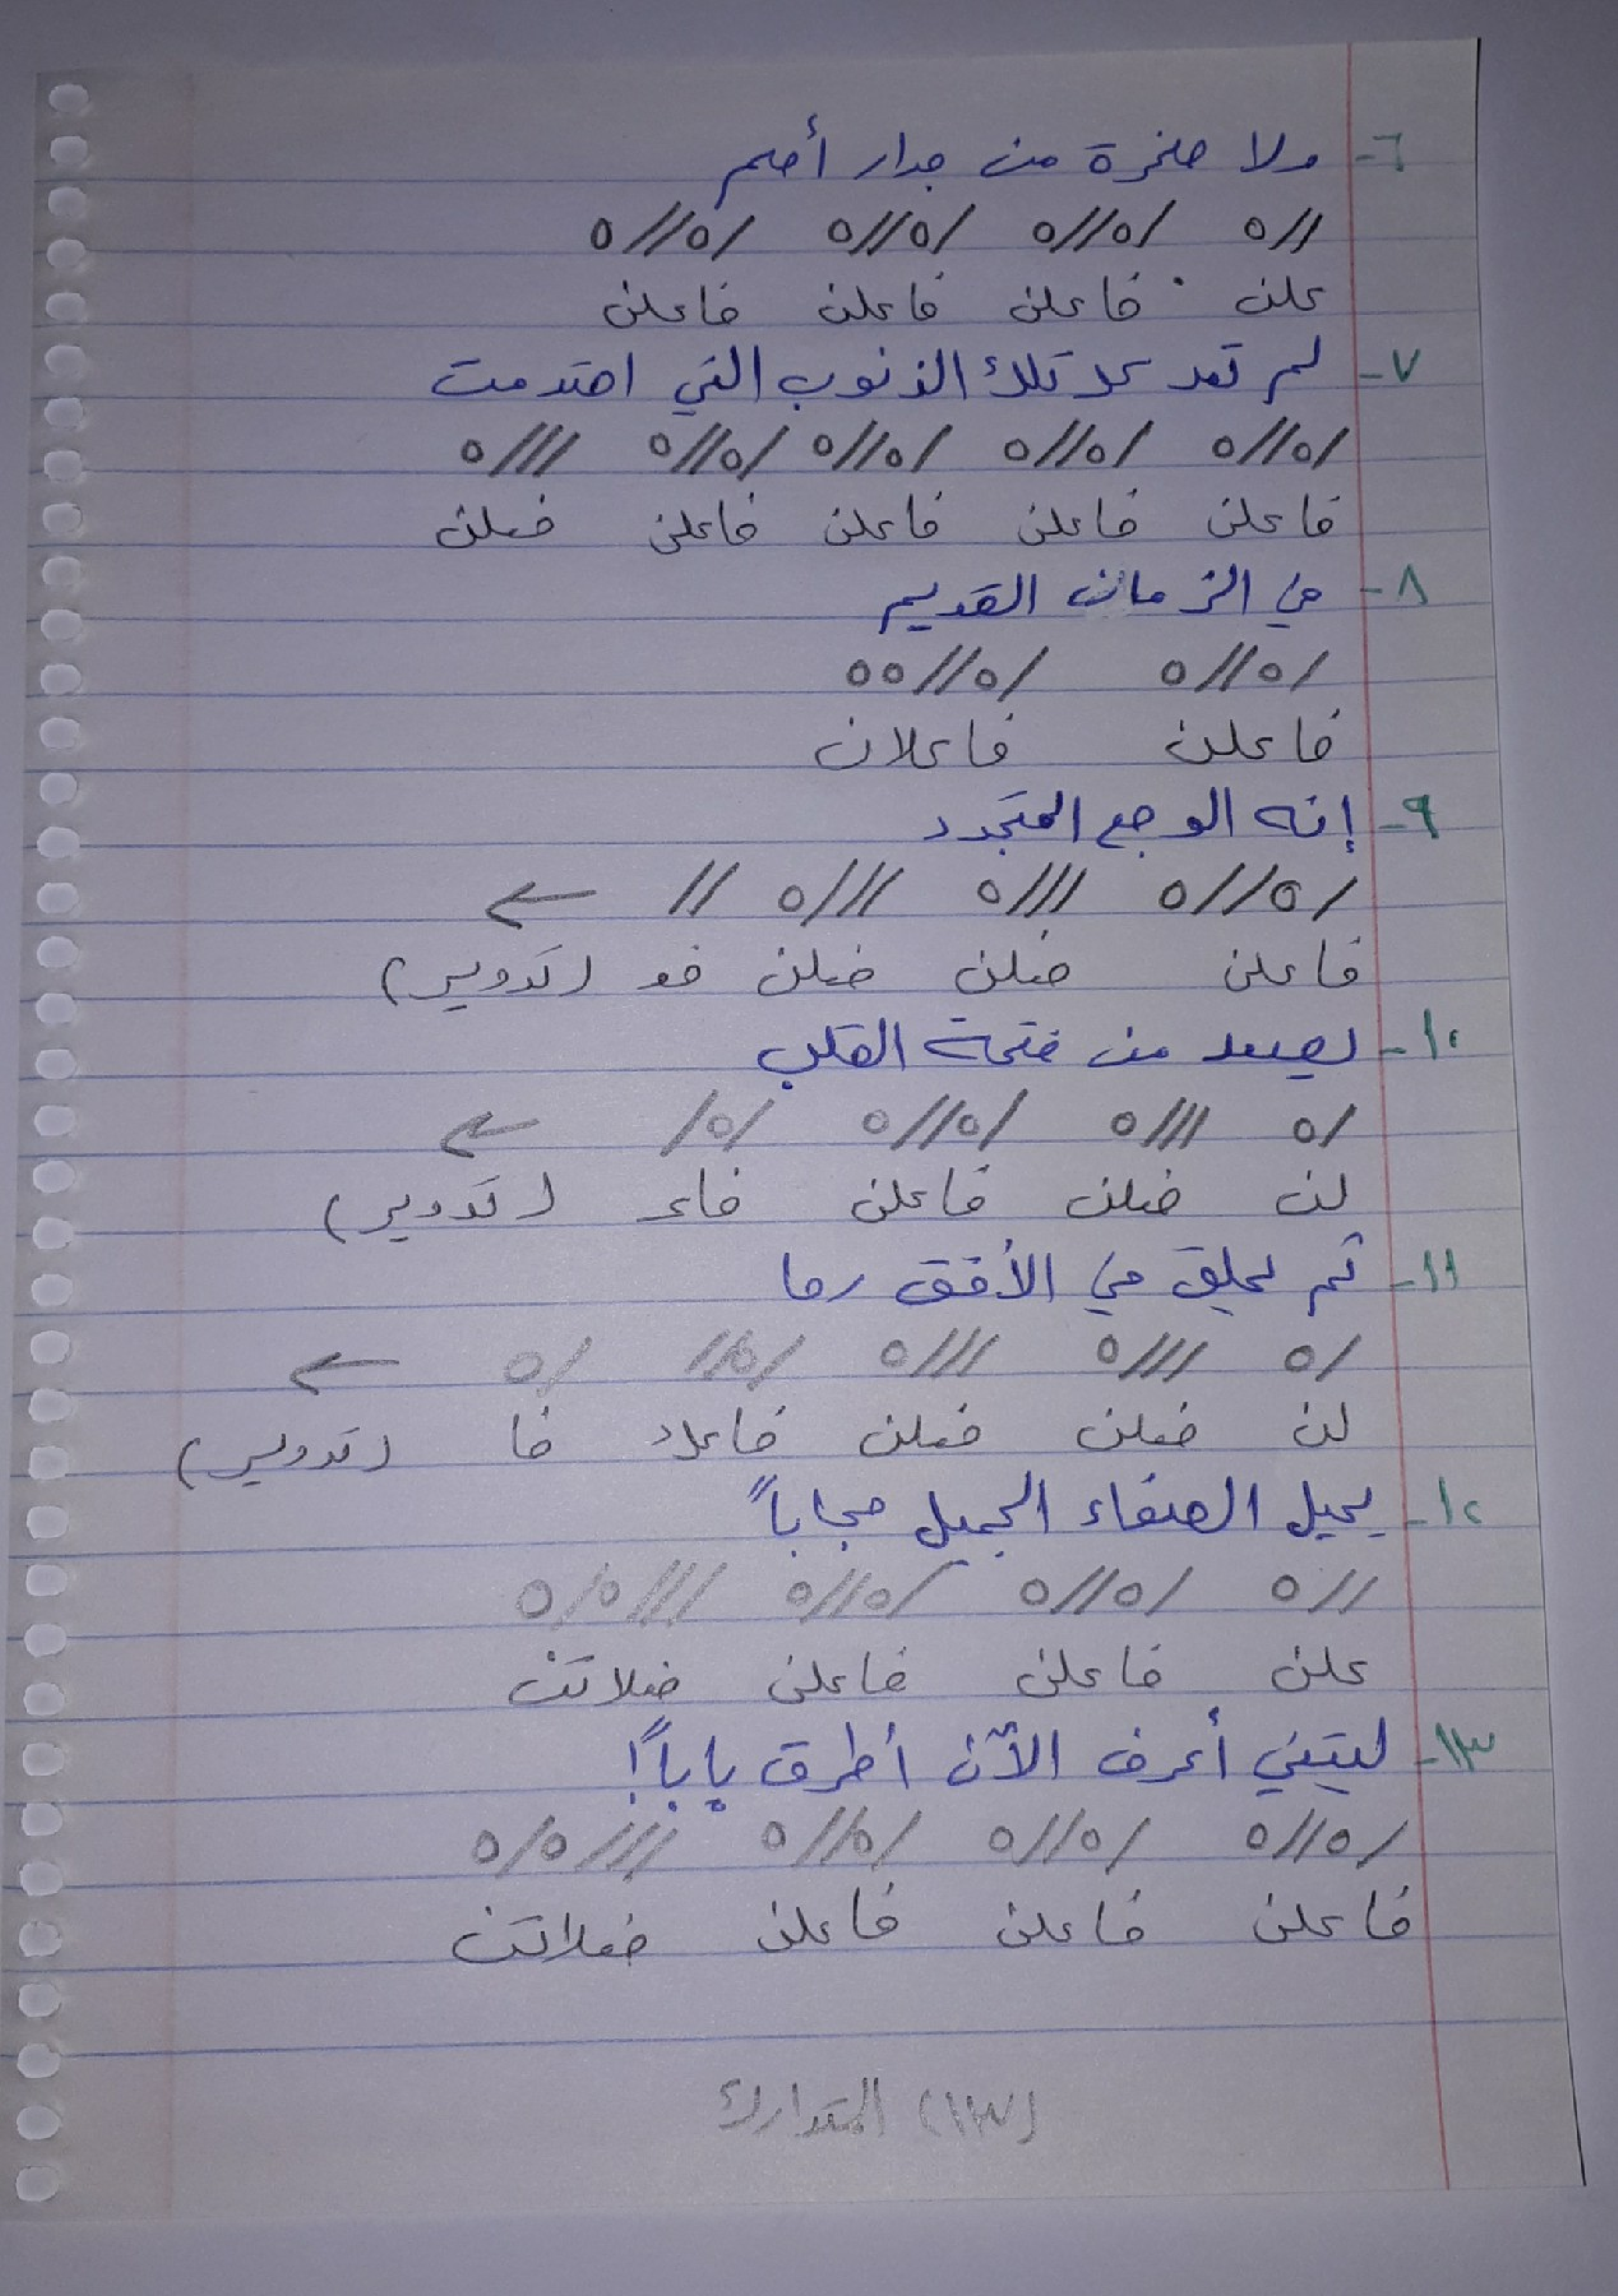 ٦- ولا صخرة من جدار أصم
//o /o//o /o//o /o//o
علن فاعلن فاعلن فاعلن
٧- لم تعد كل تلك الذنوب التي احتدمت
/o//o /o//o /o//o /o//o ///o
فاعلن فاعلن فاعلن فاعلن فعلن
٨- في الزمان القديم
/o//o /o//oo
فاعلن فاعلان
٩- إنه الوجع المتجدد
/o//o ///o ///o // ←
فاعلن فعلن فعلن فع (تدوير)
١٠- يصعد من فتحة القلب
/o ///o /o//o /o/ ←
لن فعلن فاعلن فاع (تدوير)
١١- ثم يحلق في الأفق رحا
/o ///o ///o /o// /o ←
لن فعلن فعلن فاعل فا (تدوير)
١٢- يحيل الصفاء الجميل حجاباً
//o /o//o /o//o ///o/o
علن فاعلن فاعلن فعلاتن
١٣- ليتني أعرف الآن أطرق باباً!
/o//o /o//o /o//o ///o/o
فاعلن فاعلن فاعلن فعلاتن
(١٣) المتدارك